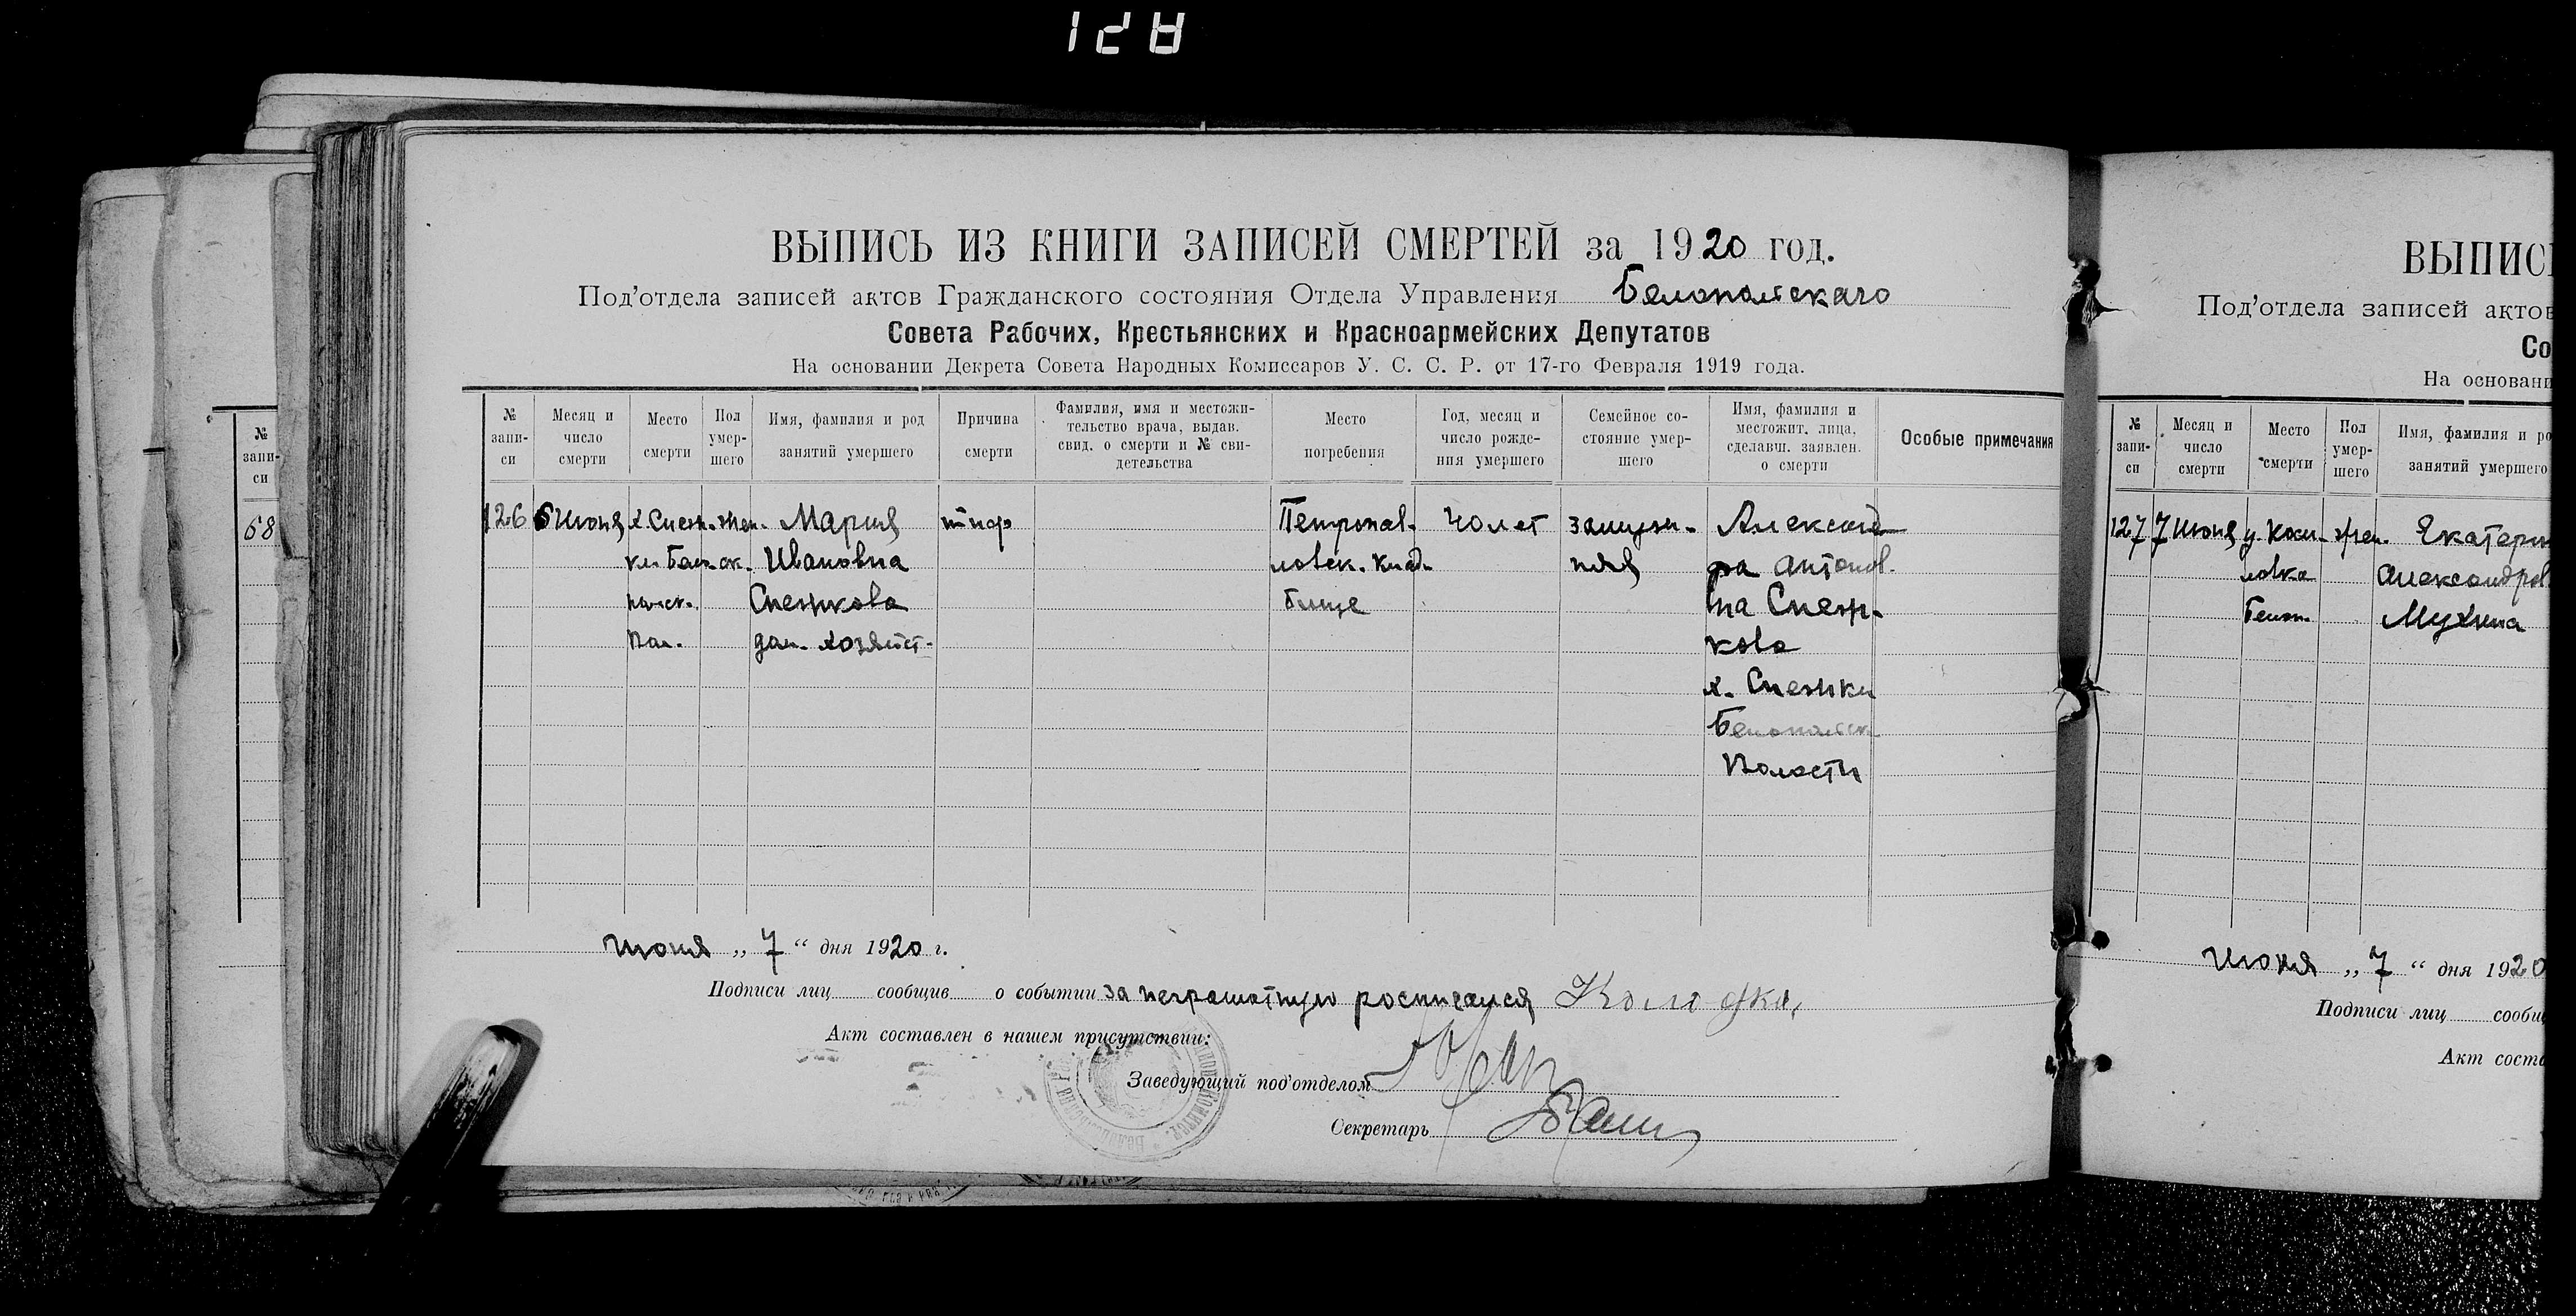 128
ВЫПИСЬ ИЗ КНИГИ ЗАПИСЕЙ СМЕРТЕЙ за 1920 год.
Под'отдела записей актов Гражданского состояния Отдела Управления Белопольскаго
Совета Рабочих, Крестьянских и Красноармейских Депутатов
На основании Декрета Совета Народных Комиссаров У. С. С. Р. от 17-го Февраля 1919 года.
№ запи- си
Месяц и число смерти
Место смерти
Пол умер- шего
Имя, фамилия и род занятий умершего
Причина смерти
Фамилия, имя и местожи- тельство врача, выдав. свид. о смерти и № сви- детельства
Место погребения
Год, месяц и число рожде- ния умершего
Семейное со- стояние умер- шего
Имя, фамилия и местожит. лица, сделавш. заявлен. о смерти
Особые примечания
126
6 Июня
х. Снеж-
ки Бел-
польск.
Вол.
жен-
ск.
Мария
Ивановна
Снежкова
дом. хозяйст-
тиф
Петропав-
ловск. Клад-
бище
40 лет
замуж-
няя
Александ
ра Антонов-
на Снеж-
кова
х. Снежки
Белопольск
Волости
июня „ 7 “ дня 1920 г.
Подписи лиц сообщив о событии за неграмотную росписался
Акт составлен в нашем присутствии:
Заведующий под'отделом
Секретарь
№
запи-
си
68
ВЫПИС
Под'отдела записей актов
Со
На основани
№ запи- си
Месяц и число смерти
Место смерти
Пол умер- шего
Имя, фамилия и ро
занятий умершего
127
7 Июня
жен.
Екатери
Александров
Мухина
Июня „ 7 “ дня 1920
Подписи лиц сообщ
Акт соста